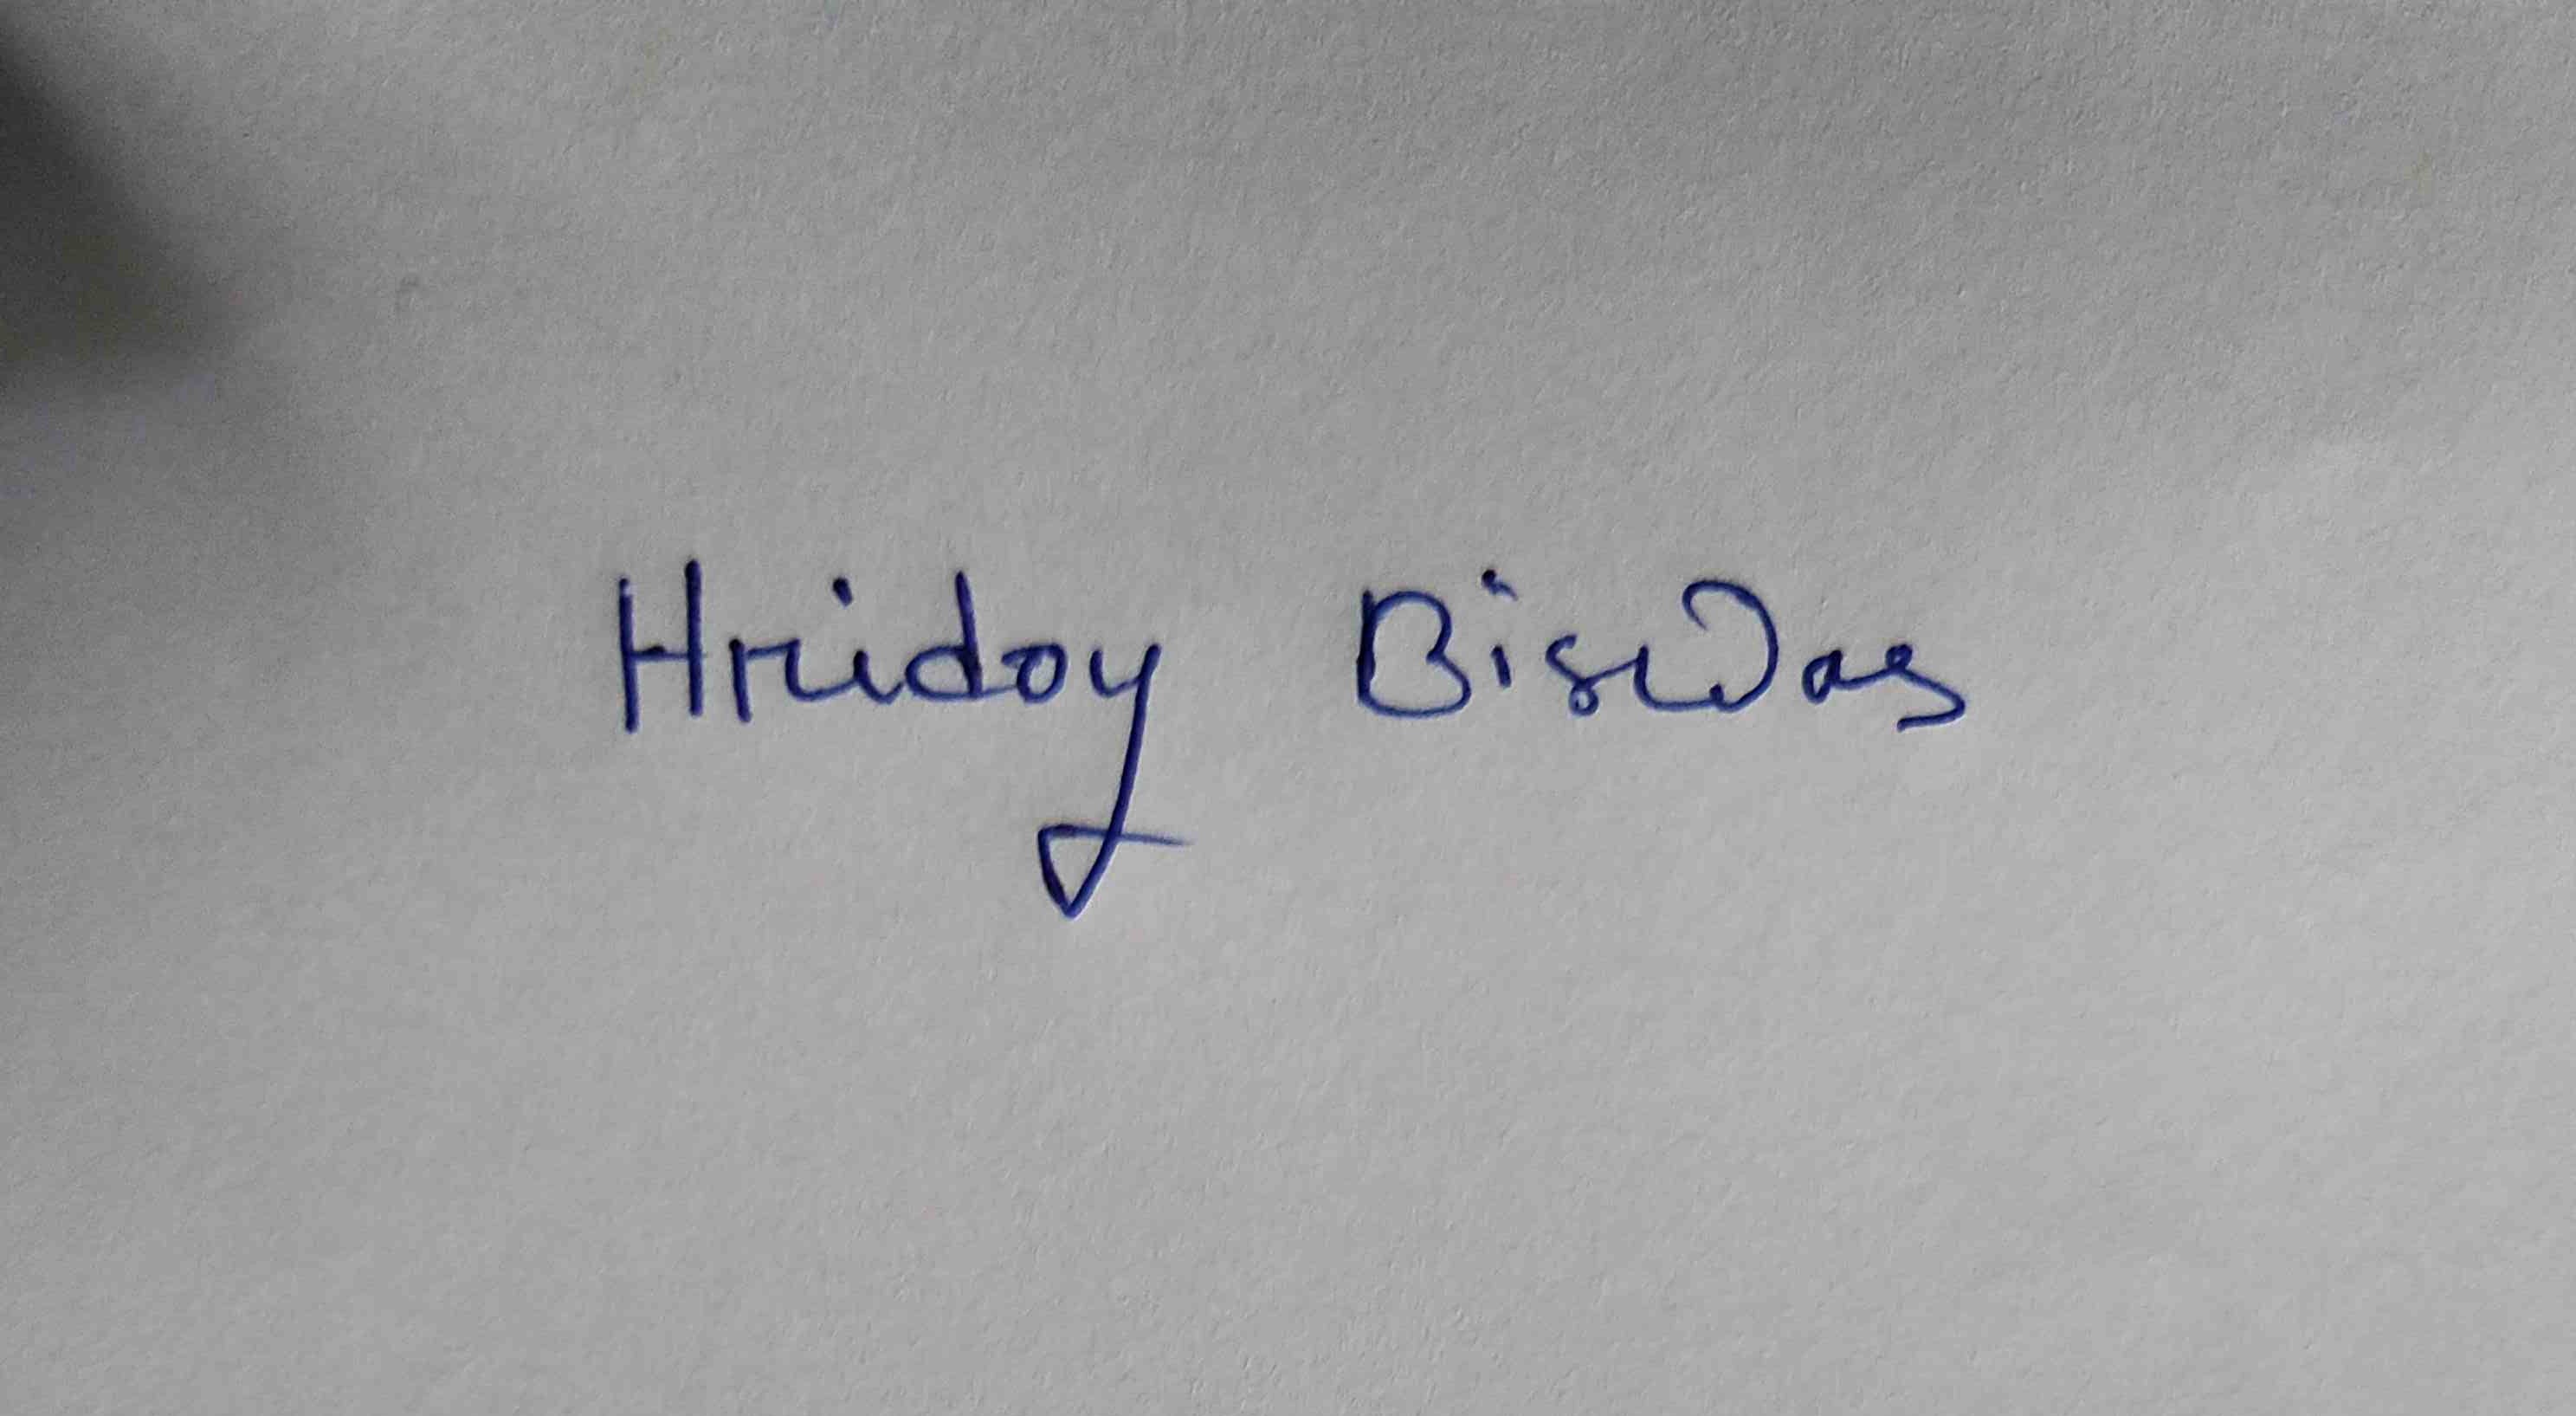 Hridoy Biswas